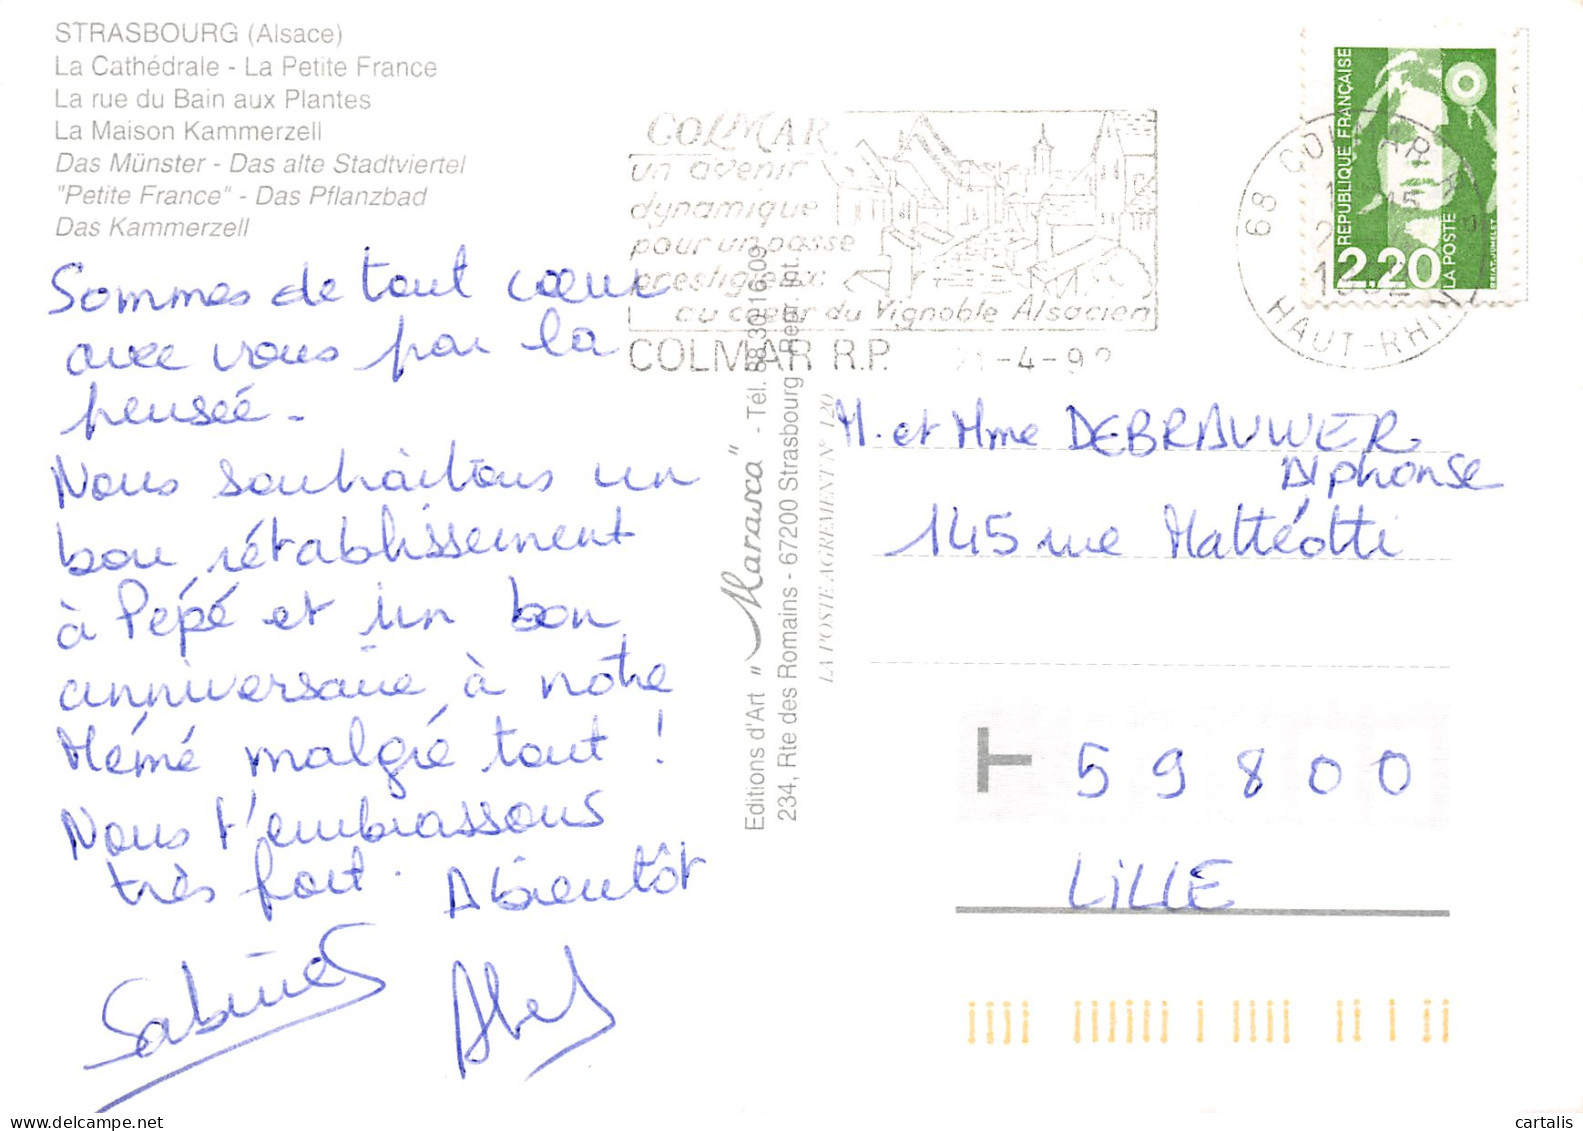 STRASBOURG (Alsace)
La Cathédrale - La Petite France
La rue du Bain aux Plantes
La Maison Kammerzell
Das Münster - Das alte Stadtviertel
"Petite France" - Das Pflanzbad
Das Kammerzell
Sommes de tout cœur
avec vous par la
pensée -
Nous souhaitons un
bon rétablissement
à Pépé et un bon
anniversaire à notre
Mémé malgré tout !
Nous t'embrassons
très fort. A bientôt
Sabine
Abel
COLMAR
un avenir
dynamique
pour un passe
prestigieux:
au coeur du Vignoble Alsacien
COLMAR R.P. 21-4-92
Editions d'Art "Marasca" - Tél. 88.30.16.09
234, Rte des Romains - 67200 Strasbourg - Repr. Int.
LA POSTE AGREMENT N° 120
68 COLMAR R.P.
HAUT-RHIN
REPUBLIQUE FRANÇAISE
2,20
LA POSTE
BRIAT-JUMELET
M. et Mme DEBRAUWER
Alphonse
145 rue Mattéotti
59800
LILLE
cartalis
www.delcampe.net